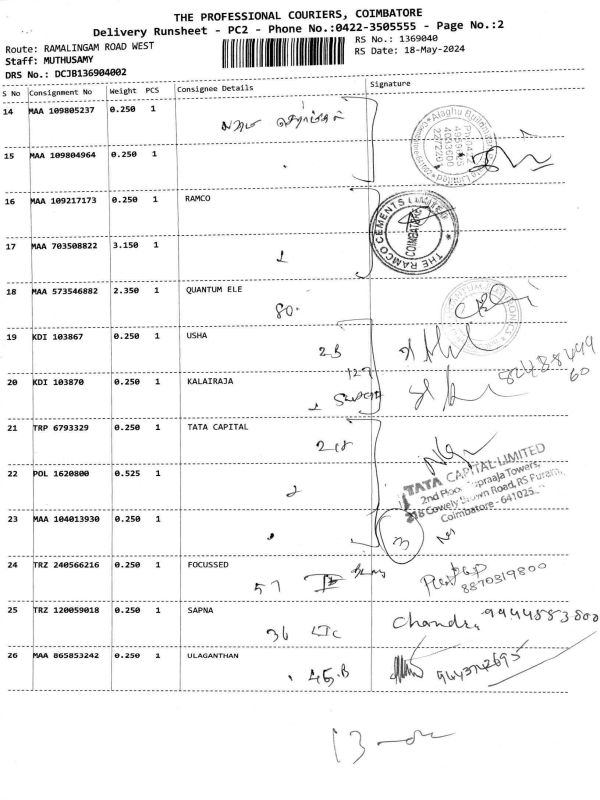 THE PROFESSIONAL COURIERS, COIMBATORE
Delivery Runsheet - PC2 - Phone No.:0422-3505555 - Page No.:2
Route: RAMALINGAM ROAD WEST
RS No.: 1369040
Staff: MUTHUSAMY
RS Date: 18-May-2024
DRS No.: DCJB136904002
S No Consignment No Weight PCS Consignee Details Signature
14 MAA 109805237 0.250 1
15 MAA 109804964 0.250 1
16 MAA 109217173 0.250 1 RAMCO
THE RAMCO CEMENTS LIMITED
COIMBATORE
17 MAA 703508822 3.150 1
18 MAA 573546882 2.350 1 QUANTUM ELE
80.
19 KDI 103867 0.250 1 USHA
23
20 KDI 103870 0.250 1 KALAIRAJA
21 TRP 6793329 0.250 1 TATA CAPITAL
218
TATA CAPITAL LIMITED
22 POL 1620800 0.525 1
2
23 MAA 104013930 0.250 1
3
24 TRZ 240566216 0.250 1 FOCUSSED
57
8870319800
25 TRZ 120059018 0.250 1 SAPNA
36
Chandra
9944853800
26 MAA 865853242 0.250 1 ULAGANTHAN
45.B
9643742695
13